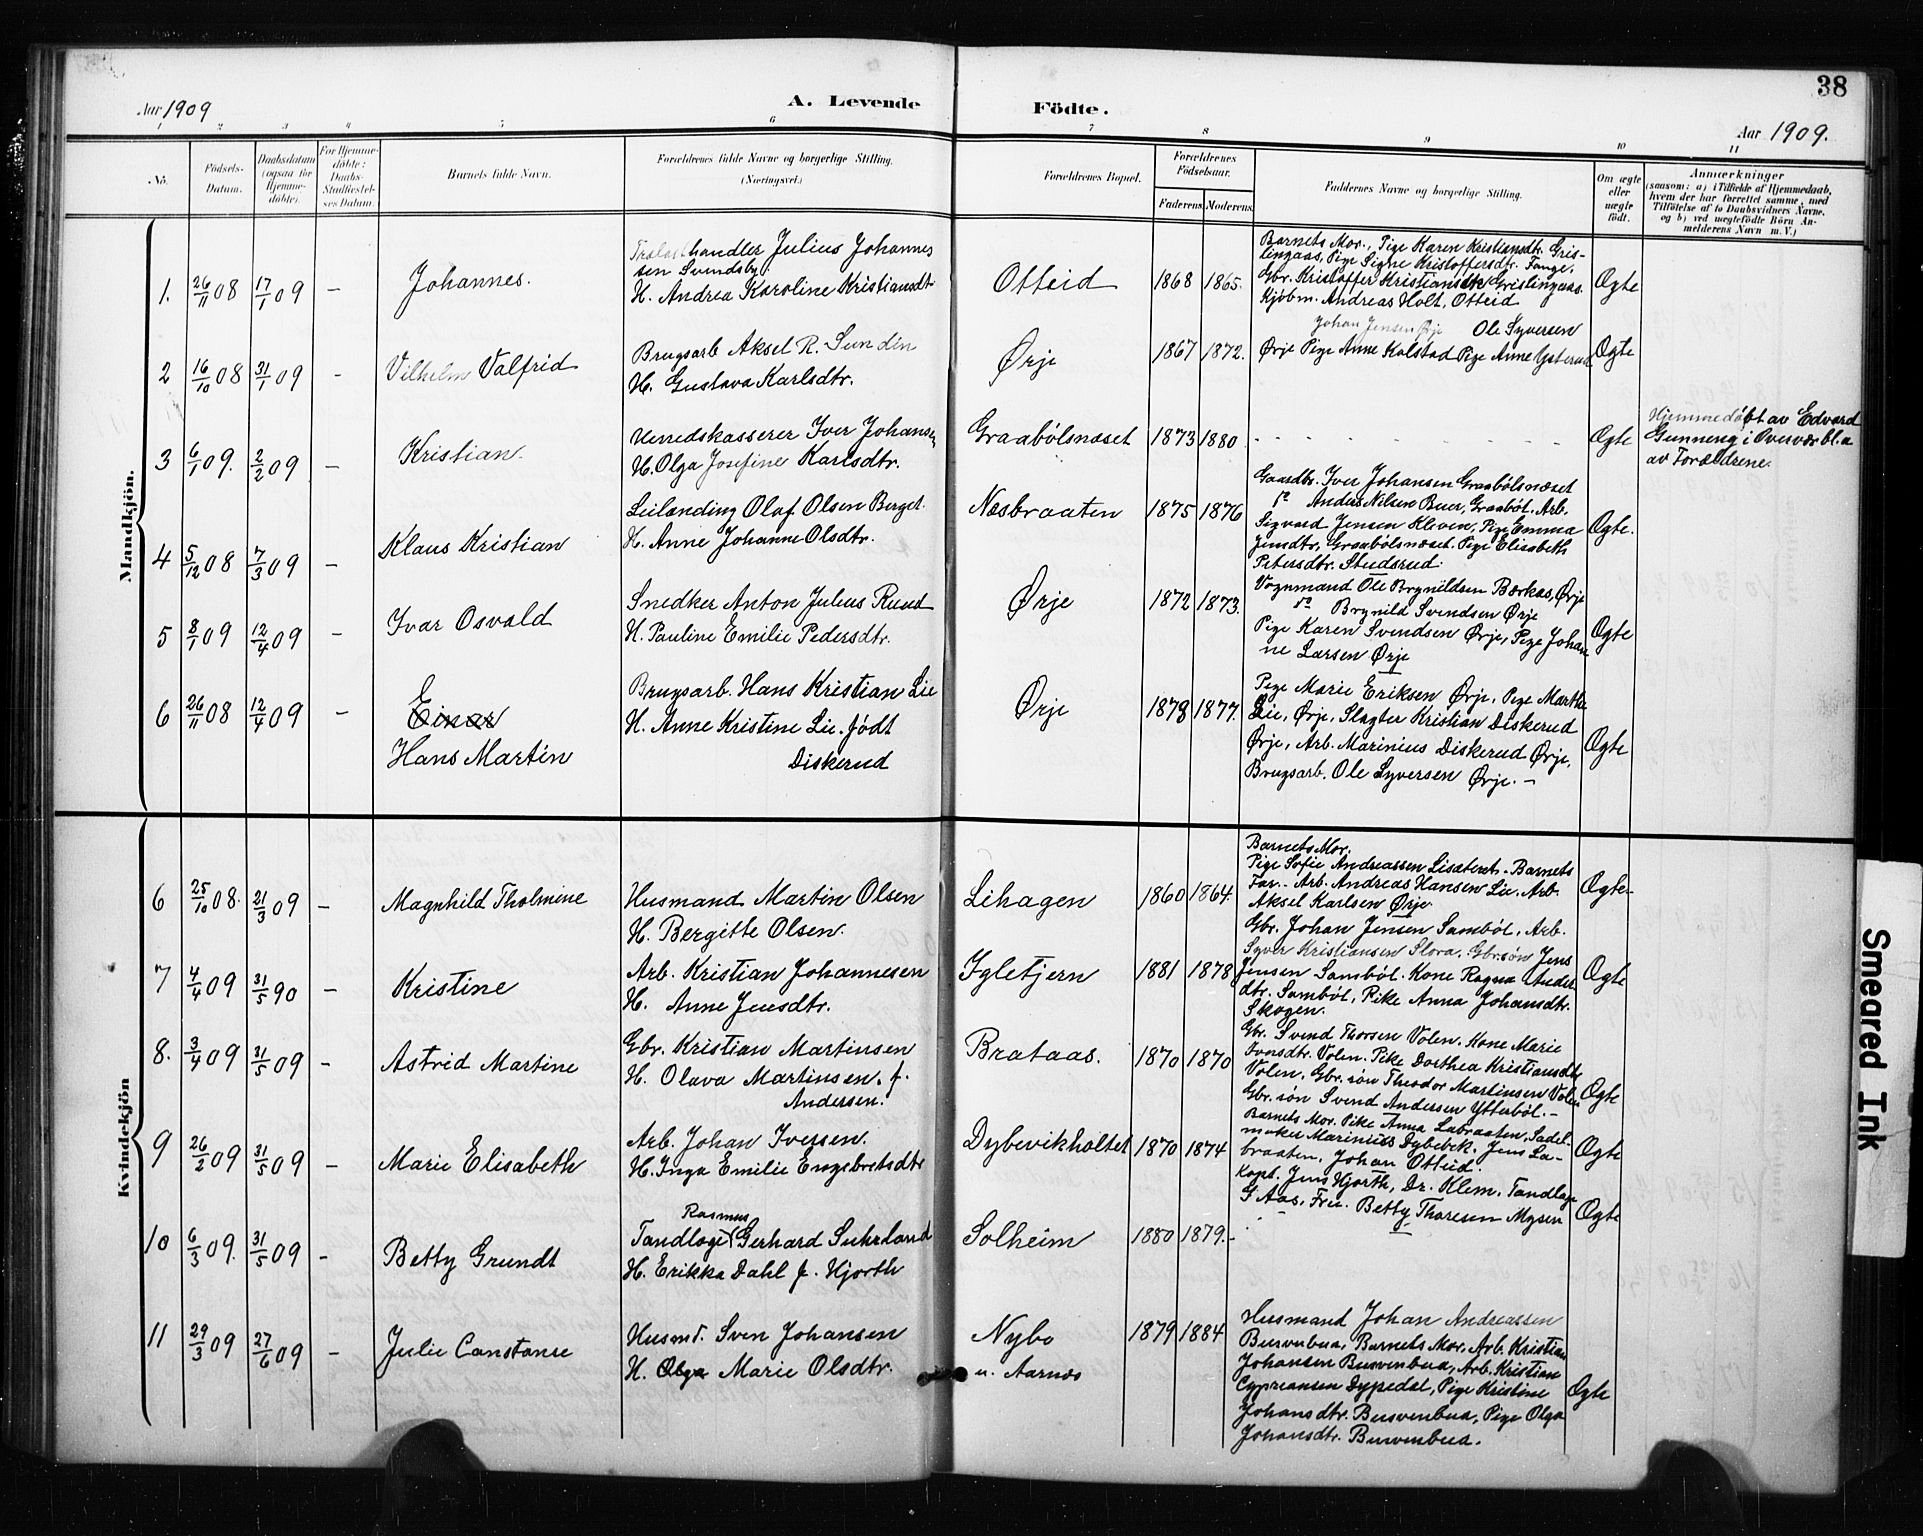 38
Aar 1909
A. Levende
Födte.
Aar 1909.
1 2 3 4 5 6 7 8 9 10 11
No.
Födsels-Datum.
Daabsdatum (ogsaa for Hjemme-döbte).
For Hjemme-döbte: Daabs-Stadfæstel-ses Datum.
Barnets fulde Navn.
Forældrenes fulde Navne og borgerlige Stilling.
(Næringsvei.)
Forældrenes Bopæl.
Forældrenes Födselsaar.
Faderens. Moderens.
Faddernes Navne og borgerlige Stilling.
Om ægte eller uægte födt.
Anmærkninger
(saasom: a) i Tilfælde af Hjemmedaab,
hvem der har forrettet samme, med
Tilföielse af to Daabsvidners Navne,
og b) ved uægtefödte Börn An-
melderens Navn m. V.)
Mandkjön.
1. 26/11 08 17/1 09 – Johannes.
Trælasthandler Julius Johannes
sen Svendsby.
H. Andrea Karoline Kristiansdt
Otteid 1868 1865.
Barnets Mor, Pige Karen Kristiansdtr. Gris-
lingaas, Pige Signe Kristoffersdtr. Tange,
Gbr. Kristoffer Kristiansen Grislingaas.
Kjöbm. Andreas Holt, Otteid
Ægte
2 16/10 08 31/1 09 – Vilhelm Valfrid
Brugsarb Aksel R. Sundin
H. Gustava Karlsdtr.
Ørje 1867 1872.
Johan Jensen Ørje Ole Syversen
Ørje Pige Anne Kalstad Pige Anne Ysterud
Ægte
3 6/1 09. 2/2 09 – Kristian.
Herredskasserer Iver Johansen
H. Olga Josefine Karlsdtr.
Graabölsnæset 1873 1880
Ægte
Hjemmedöbt av Edvard
Gunneng i Overvær bl.a
av Forældrene.
4 5/12 08 7/3 09 – Klaus Kristian
Leilending Olaf Olsen Berget.
H. Anne Johanne Olsdtr.
Næsbraaten 1875 1876
Gaardbr. Iver Johansen Graabölsnæset
do Anders Nilsen Buer, Graaböl. Arb.
Sigvard Jensen Kleven, Pige Emma
Jensdtr, Graabölsnæset. Pige Elisabeth
Petersdtr. Studsrud.
Ægte.
5 8/1 09 12/4 09 – Ivar Osvald
Snedker Anton Julius Ruud
H. Pauline Emilie Pedersdtr.
Ørje 1872 1873.
Vognmand Ole Brynildsen Bærkas, Ørje
do Brynild Svendsen Ørje
Pige Karen Svendsen Ørje, Pige Johan
ne Larsen Ørje
Ægte
6 26/11 08 12/4 09 – Einar
Hans Martin
Brugsarb. Hans Kristian Lie
H. Anne Kristine Lie. födt
Diskerud
Ørje 1878 1877.
Pige Marie Eriksen Ørje, Pige Marthe
Lie, Ørje, Slagter Kristian Diskerud
Ørje, Arb. Marinius Diskerud Ørje,
Brugsarb. Ole Syversen Ørje. –
Ægte
Kvindekjön
6 25/10 08. 21/3 09 – Magnhild Tholmine
Husmand Martin Olsen
H. Bergitte Olsen.
Lihagen 1860 1864.
Barnets Mor.
Pige Sofie Andreassen Lisæteret. Barnets
Far. Arb. Andreas Hansen Lie. Arb.
Aksel Karlsen Ørje
Ægte
7 4/4 09 31/5 90 – Kristine
Arb. Kristian Johannesen
H. Anne Jensdtr.
Igletjern 1881 1878
Gbr. Johan Jensen Samböl, Arb.
Syver Kristiansen Slora. Gbr.sön Jens
Jensen Samböl. Kone Ragna Anders
dtr. Samböl, Pike Anna Johansdtr.
Skogen.
Ægte
8. 3/4 09 31/5 09 – Astrid Martine
Gbr. Kristian Martinsen
H. Olava Martinsen. f.
Andersen.
Brataas. 1870 1870
Gbr. Svend Thorsen Volen. Kone Marie
Volen. Pike Dorthea Kristiansdtr
Volen, Gbr. sön Theodor Martinsen Volen
Gbr. sön Svend Andersen Ytterböl. –
Ægte
9 26/2 09 31/5 09 – Marie Elisabeth
Arb. Johan Iversen.
H. Inga Emilie Engebretsdtr
Dybevikholtet 1870 1874
Barnets Mor. Pike Anna Labraaten, Sadel-
maker Marinius Dybebek, Jens La-
braaten, Johan Otteid.
Ægte
10 6/3 09. 31/5 09 – Betty Grundt
Rasmus
Tandlæge Gerhard Suhrland
H. Erikka Dahl f. Hjorth
Solheim 1880 1879. –
Kapt. Jens Hjorth, Dr. Klem, Tandlæge
G Aas, Fru. Betty Thoresen Mysen
Ægte
11 29/3 09 27/6 09 – Julie Constanse
Husmd. Sven Johansen
H. Olga Marie Olsdtr.
Nybo
u. Aarnæs
1879 1884
Husmand Johan Andreassen
Busvenbua, Barnets Mor, Arb. Kristian
Johansen Busvenbua, Arb. Kristian
Cypreansen Dypedal, Pige Kristine
Johansdtr. Busvenbua, Pige Olga
Johansdtr. Busvenbua.
Ægte
Smeared Ink